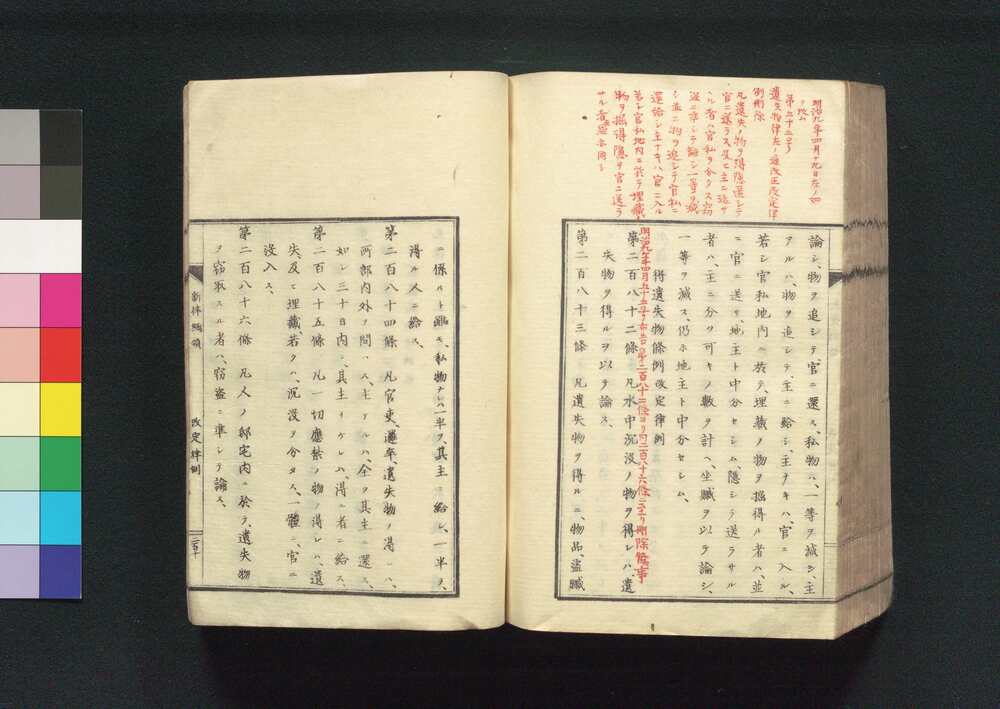 明治九年四月十九日左ノ如
ク改ム
第五十二号
遺失物律左ノ通改正改定律
例削除
凡遺失ノ物ヲ得隠匿シテ
官ニ送ラス及ヒ主ニ還サ
ル者ハ官私ヲ分タス窃
盗ニ準シテ論シ一等ヲ減
シ並ニ物ヲ追シテ官私ニ
還給シ主ナキハ官ニ入ル
若シ官私地内ニ於テ埋蔵
物ヲ掘得隠テ官ニ送ラ
サル者罪亦同シ
論シ、物ヲ追シテ、官ニ還ス、私物ハ、一等ヲ減シ、主
アルハ、物ヲ追シテ、主ニ給シ、主ナキハ、官ニ入ル、
若シ官私地内ニ於テ、埋蔵ノ物ヲ掘得ル者ハ、並
ニ官ニ送リ、地主ト中分セシム、隠シテ送ラサル
者ハ、主ニ分ツ可キノ数ヲ計ヘ、坐贓ヲ以テ論シ、
一等ヲ減ス、仍ホ地主ト中分セシム、
得遺失物條例改定律例
明治九年四月五十二号布告ヲ以テ第二百八十二條ヨリ同二百八十六條ニ至リ削除候事
第二百八十二條 凡水中沉没ノ物ヲ得レハ、遺
失物ヲ得ルヲ以テ論ス、
第二百八十三條 凡遺失物ヲ得ルニ、物品、盗贓
ニ係ルト雖モ、私物ナレハ一半ヲ、其主ニ給シ、一半ヲ、
得ル人ニ給ス、
第二百八十四條 凡官吏、邏卒、遺失物ノ得ハ、
所部内外ヲ問ハス、主アルハ、全ヲ其主ニ還ス、
如シ三十日内ニ、其主ナケレハ、得ル者ニ給ス、
第二百八十五條 凡一切應禁ノ物ノ得レハ、遺
失、及ヒ埋蔵、若クハ、沉没ヲ分タス、一體ニ、官ニ
没入ス、
第二百八十六條 凡人ノ邸宅内ニ於テ、遺失物
ヲ竊取スル者ハ、窃盗ニ準シテ論ス、
新律綱領 改定律例 二百十